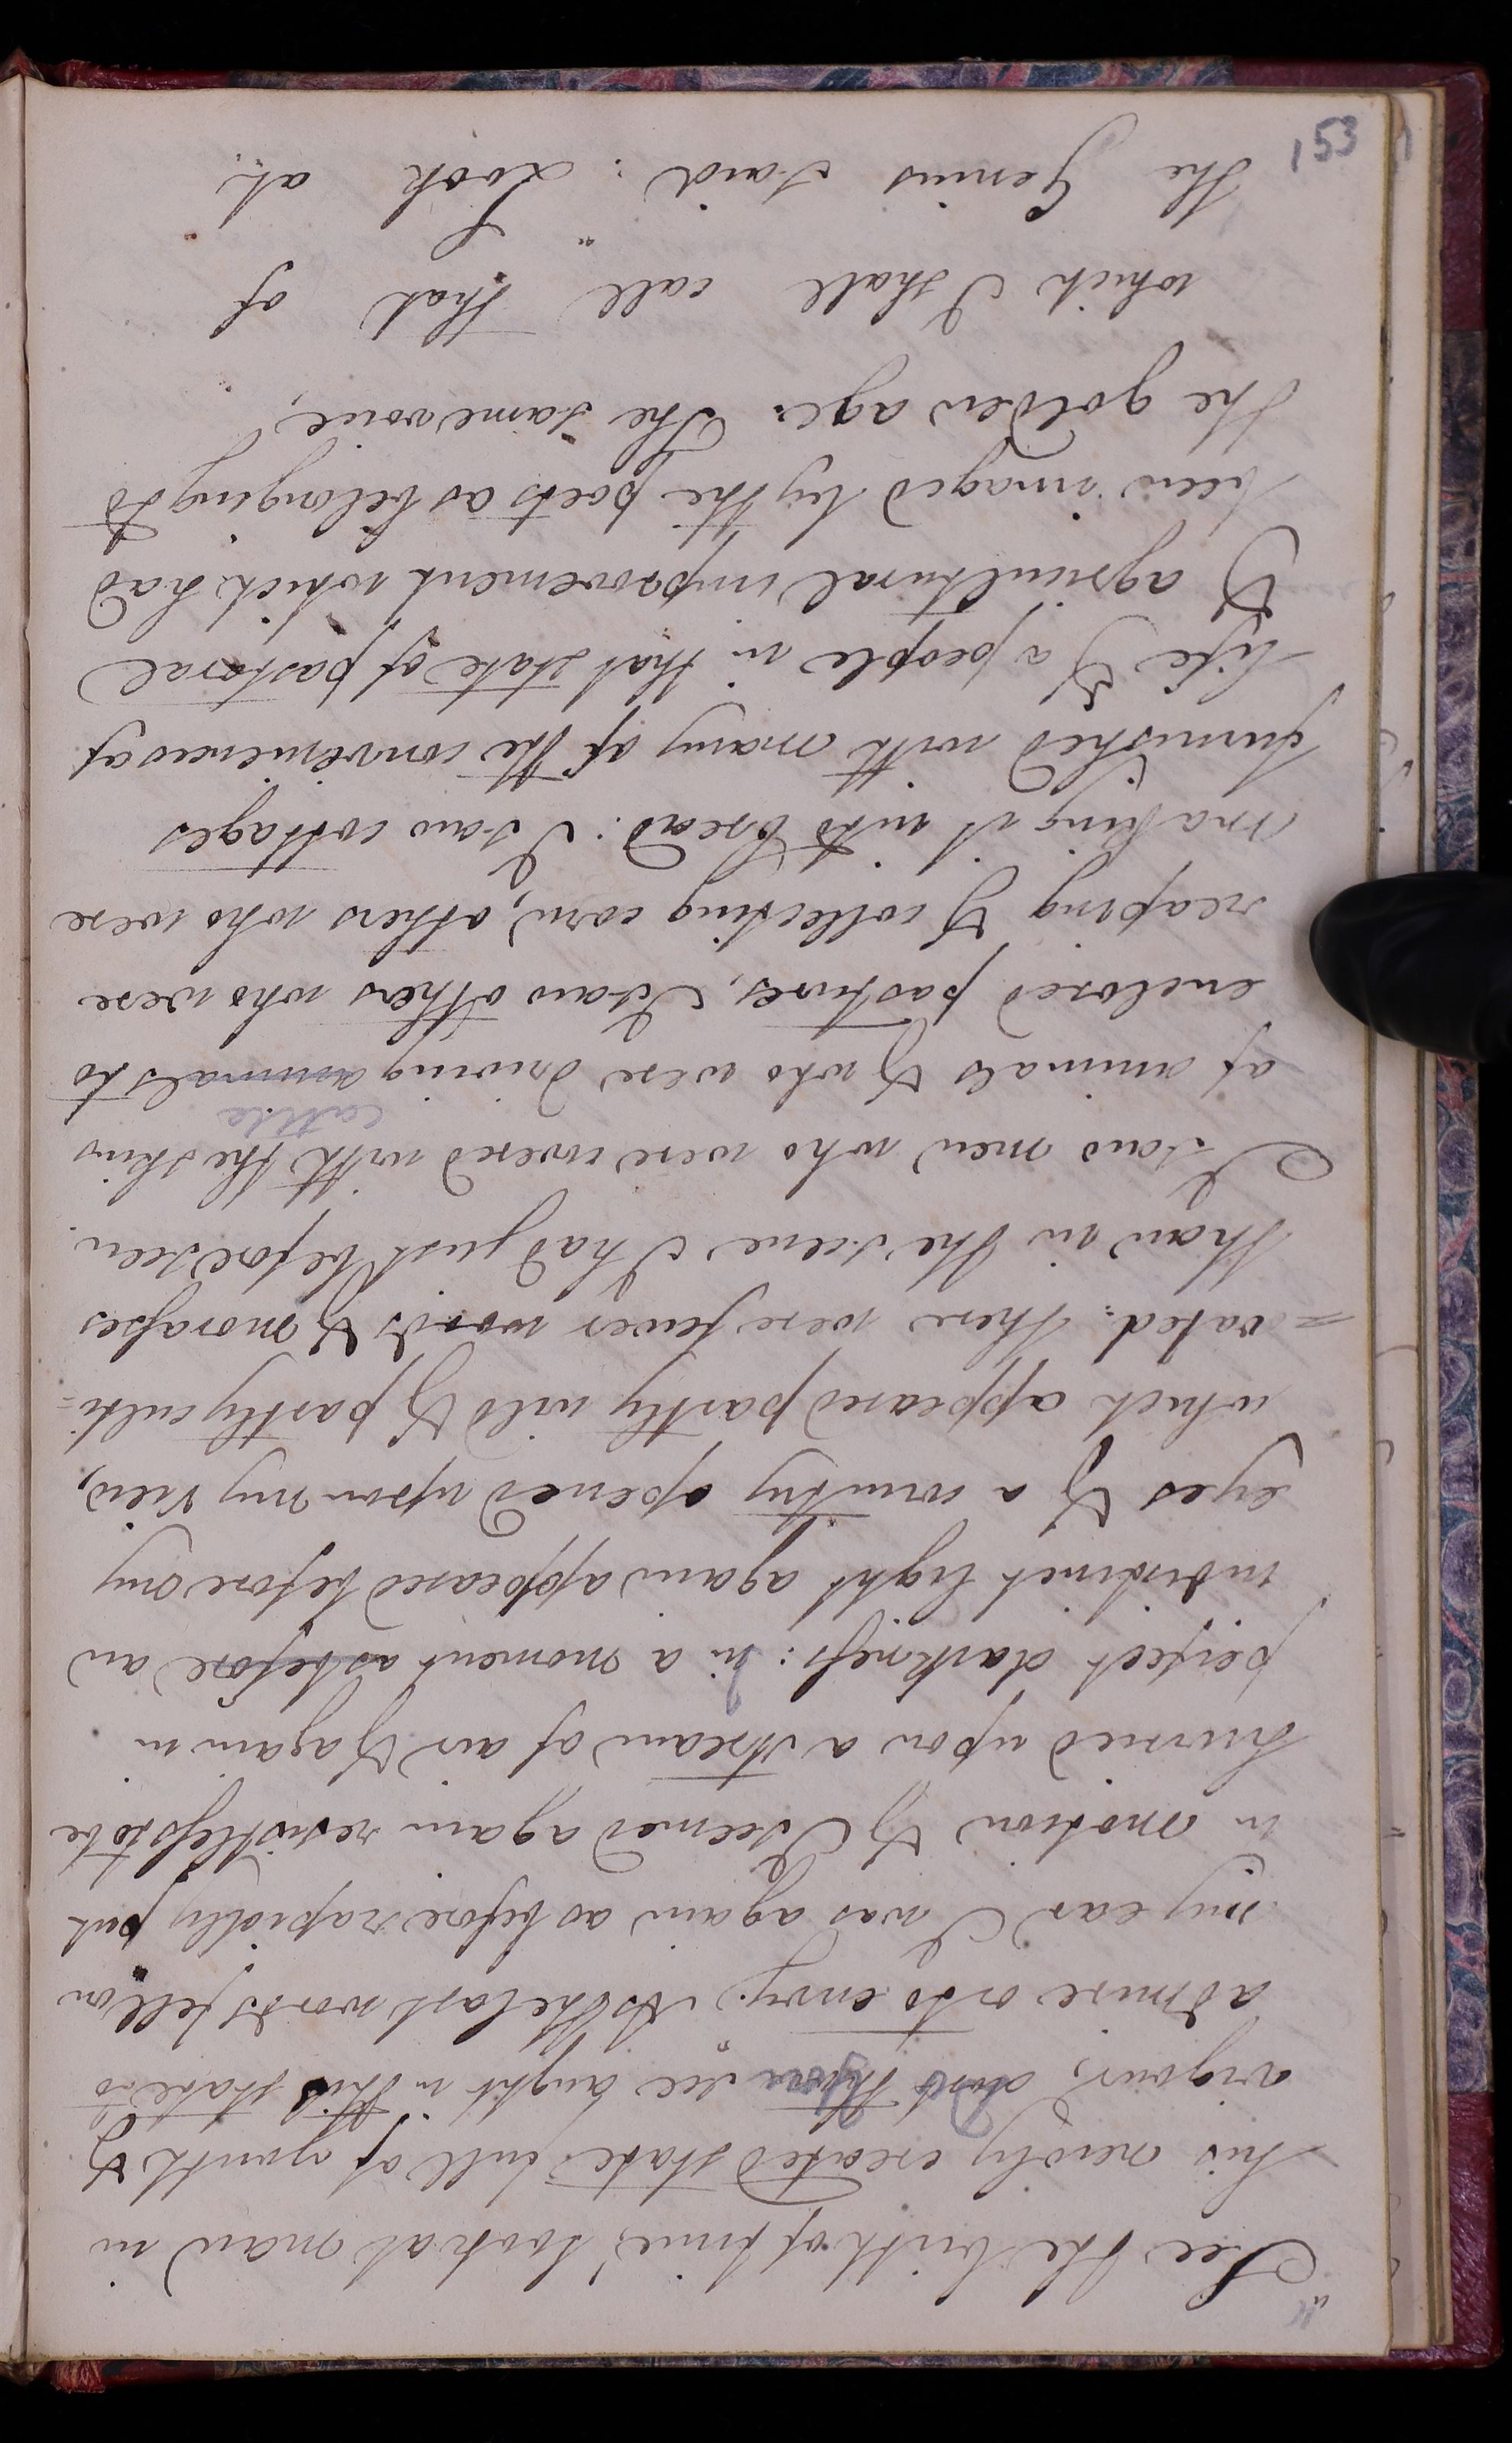 "See the birth of time; look at man in
his newly created state full of youth &
vigour; dost thou see aught in this state to
admire or to envy." As the last words fell on
my ear I was again as before rapidly put
in motion & I seemed again resistless to be
hurried upon a stream of air & again in
perfect darkness: In a moment as before an
indistinct light again appeared before my
eyes & a country opened upon my view,
which appeared partly wild & partly culti-
=vated. there were fewer woods & morasses
than in the scene I had just before seen.
I saw men who were covered with the skins
cattle
of animals & who were driving animals to
enclosed pastures, I saw others who were
reaping & collecting corn, others who were
making it into bread: I saw cottages
furnished with many of the conveniences of
life & a people in that state of pastoral
& agricultural improvement which had
been imaged by the poets as belonging to
the golden age. The same voice,
which I shall call that of
the Genius said: "Look at
153